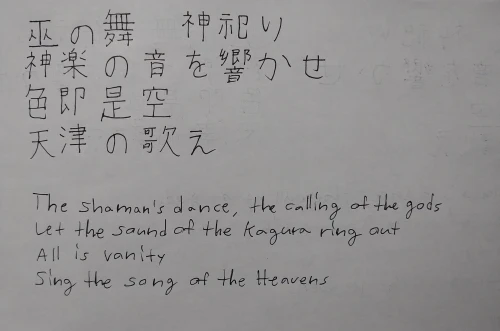 巫の舞　神祀り
神楽の音を響かせ
色即是空
天津の歌え
The shaman's dance, the calling of the gods
Let the sound of the Kagura ring out
All is vanity
Sing the song of the Heavens